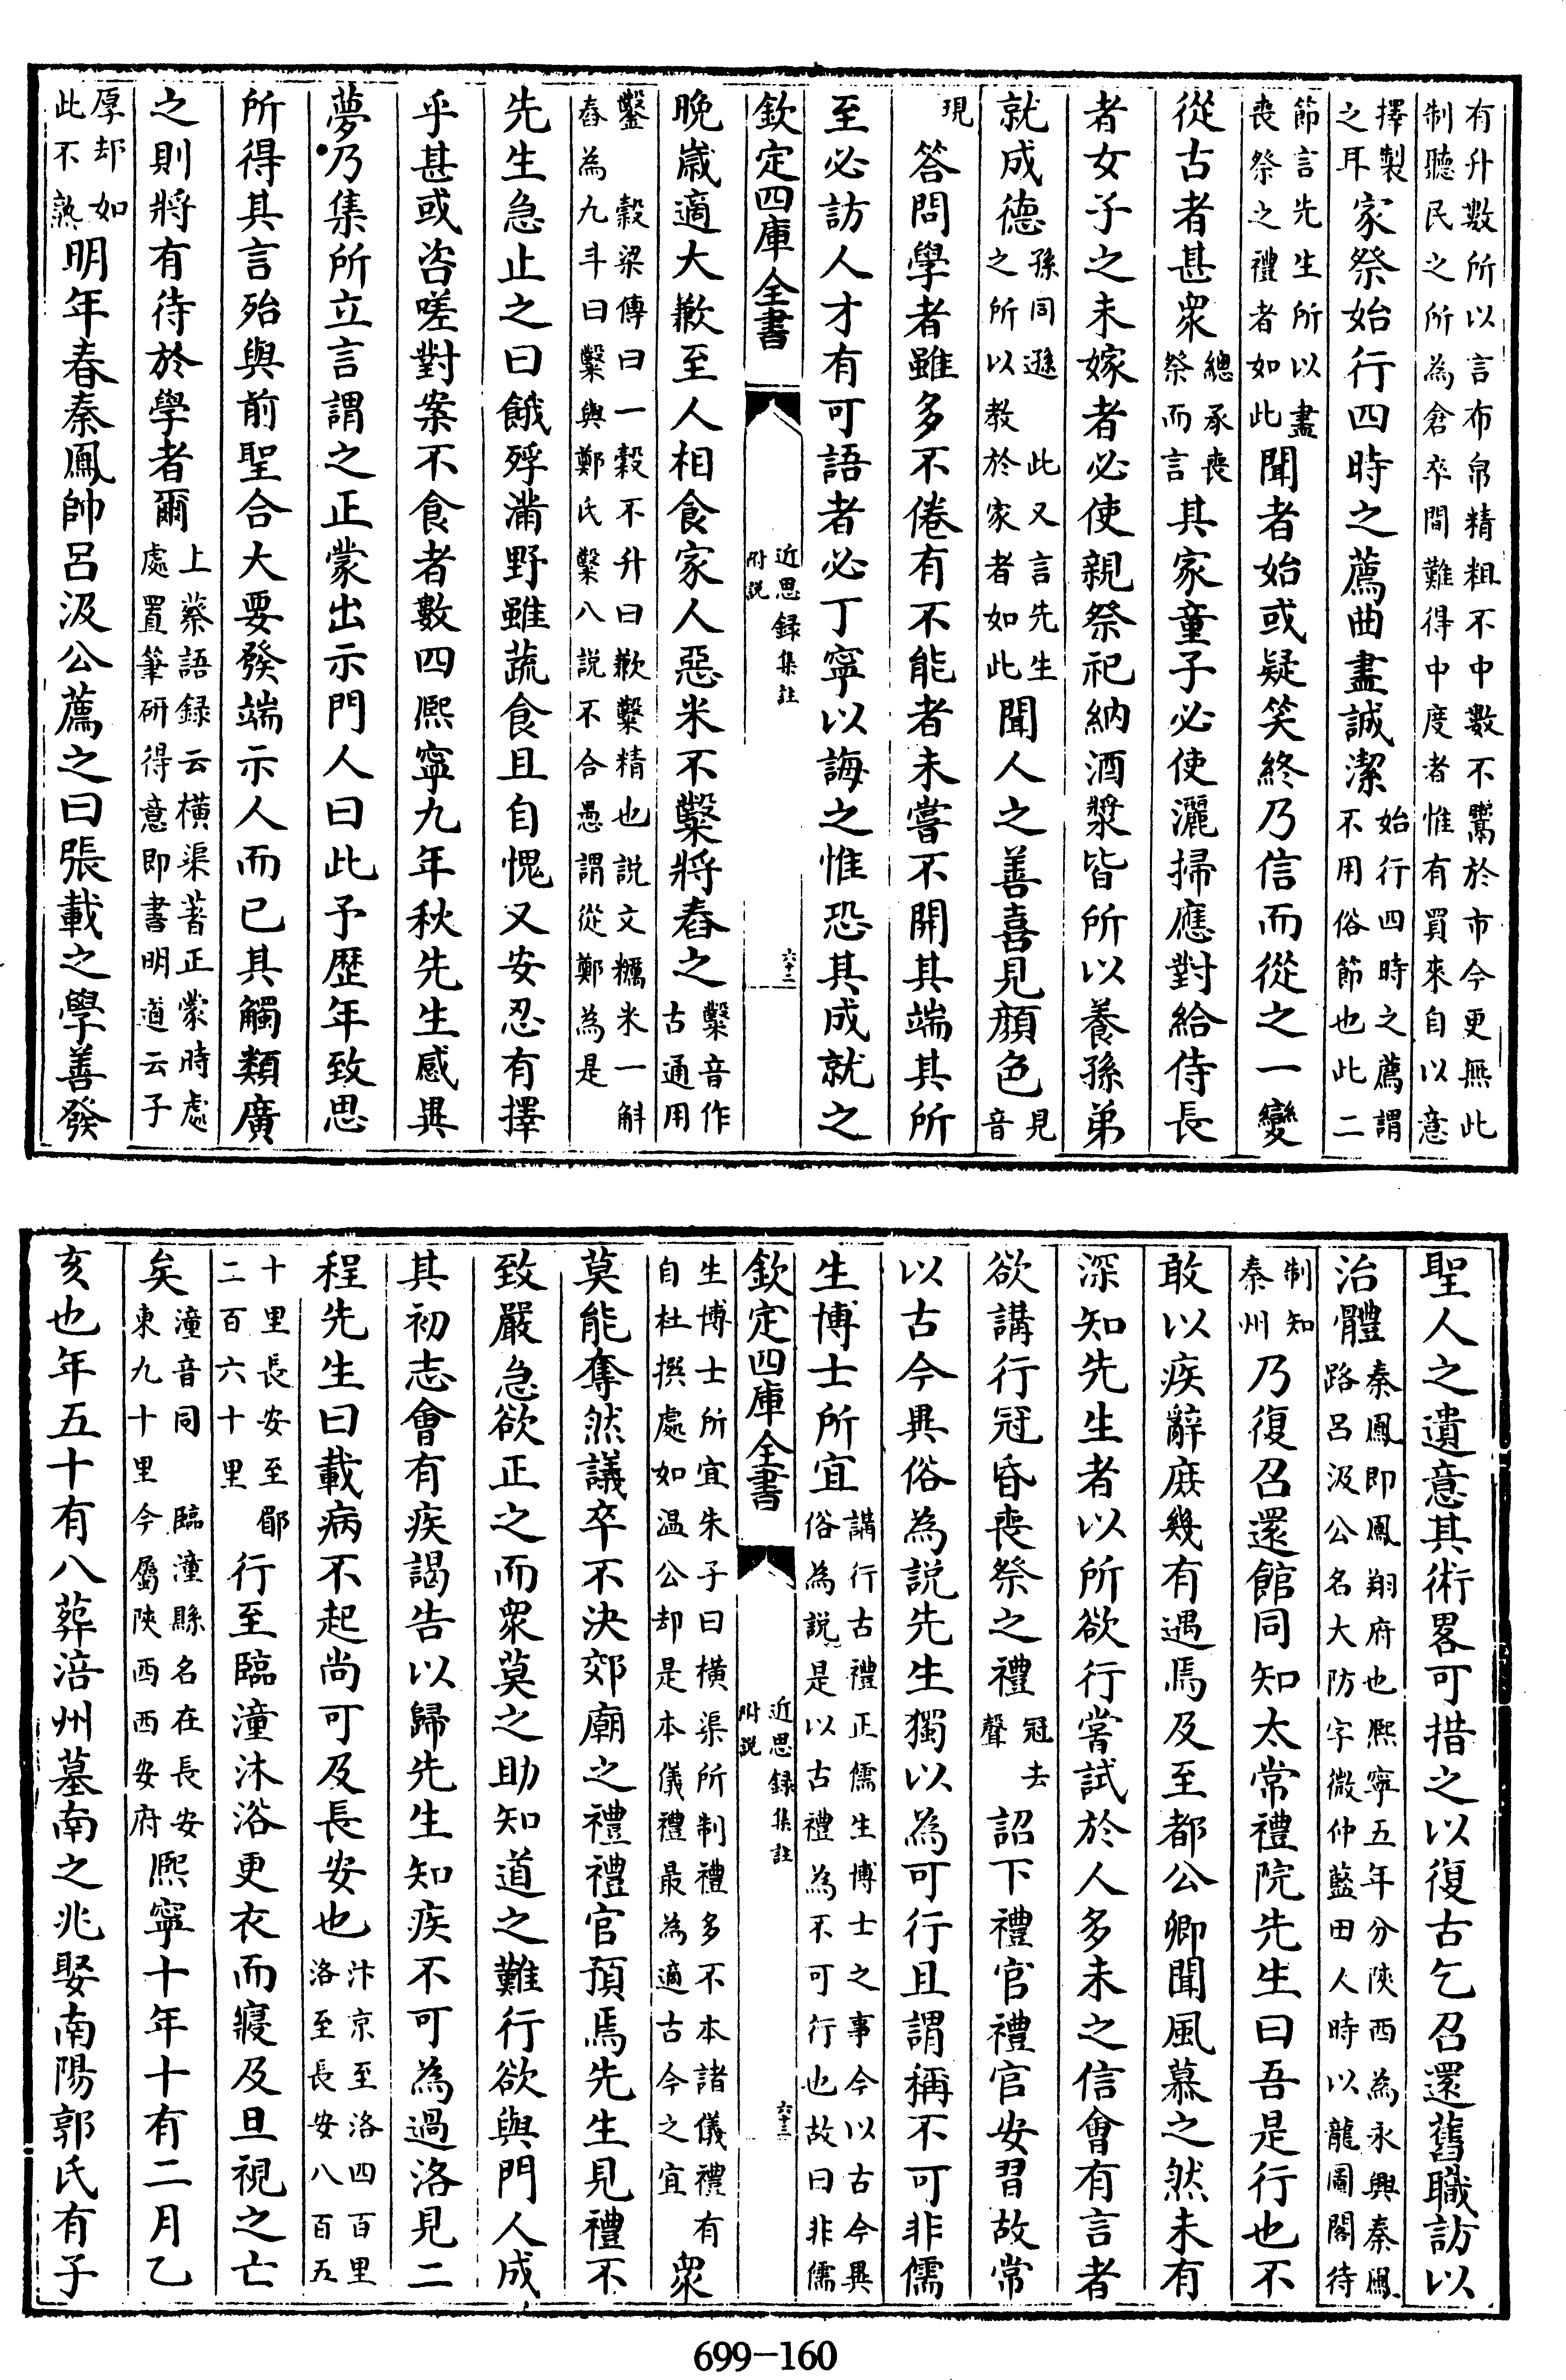 有升數所以言布帛精粗不中數不鬻於市今更無此
制聽民之所為倉卒間難得中度者惟有買來自以意
擇製
之耳
家祭始行四時之薦曲盡誠潔
始行四時之薦謂
不用俗節也此二
節言先生所以盡
喪祭之禮者如此
聞者始或疑笑終乃信而從之一變
從古者甚衆
總承喪
祭而言
其家童子必使灑掃應對給侍長
者女子之未嫁者必使親祭祀納酒漿皆所以養孫弟
就成德
孫同遜 此又言先生
之所以教於家者如此
聞人之善喜見顔色
見
音
現
答問學者雖多不倦有不能者未嘗不開其端其所
至必訪人才有可語者必丁寧以誨之惟恐其成就之
欽定四庫全書
近思録集註
附説
六十二
晚歲適大歉至人相食家人惡米不鑿將舂之
鑿音作
古通用
鑿 穀梁傳曰一穀不升曰歉鑿精也説文糲米一斛
舂為九斗曰鑿與鄭氏鑿八説不合愚謂從鄭為是
先生急止之曰餓殍滿野雖蔬食且自愧又安忍有擇
乎甚或咨嗟對案不食者數四熙寧九年秋先生感異
夢乃集所立言謂之正蒙出示門人曰此予歴年致思
所得其言殆與前聖合大要發端示人而已其觸類廣
之則將有待於學者爾
上蔡語録云横渠著正蒙時處
處置筆硏得意即書明道云子
厚却如
此不熟
明年春秦鳳帥呂汲公薦之曰張載之學善發
聖人之遺意其術畧可措之以復古乞召還舊職訪以
治體
秦鳳即鳳翔府也熙寧五年分陜西為永興秦鳳
路呂汲公名大防字微仲藍田人時以龍圖閣待
制知
秦州
乃復召還館同知太常禮院先生曰吾是行也不
敢以疾辭庶幾有遇焉及至都公卿聞風慕之然未有
深知先生者以所欲行嘗試於人多未之信會有言者
欲講行冠昏喪祭之禮
冠去
聲
詔下禮官禮官安習故常
以古今異俗為説先生獨以為可行且謂稱不可非儒
生博士所宜
講行古禮正儒生博士之事今以古今異
俗為説是以古禮為不可行也故曰非儒
欽定四庫全書
近思録集註
附説
六十三
生博士所宜朱子曰横渠所制禮多不本諸儀禮有
自杜撰處如温公却是本儀禮最為適古今之宜
衆
莫能奪然議卒不決郊廟之禮禮官預焉先生見禮不
致嚴急欲正之而衆莫之助知道之難行欲與門人成
其初志會有疾謁告以歸先生知疾不可為過洛見二
程先生曰載病不起尚可及長安也
汴京至洛四百里
洛至長安八百五
十里長安至郿
二百六十里
行至臨潼沐浴更衣而寢及旦視之亡
矣
潼音同 臨潼縣名在長安
東九十里今屬陜西西安府
熙寧十年十有二月乙
亥也年五十有八葬涪州墓南之兆娶南陽郭氏有子
699-160